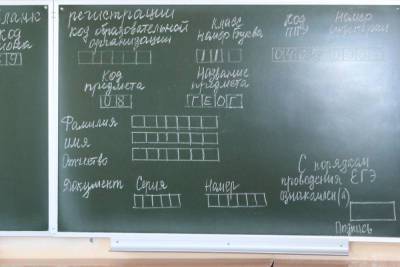 регистрации
код образовательной
организации
Класс
Номер Буква
11
Код
ППЭ
Номер
Код
предмета
08
Название
предмета
ГЕОГ
Фамилия
имя
Отчество
Документ Серия Номер
С порядком
проведения ЕГЭ
ознакомлен(а)
Подпись